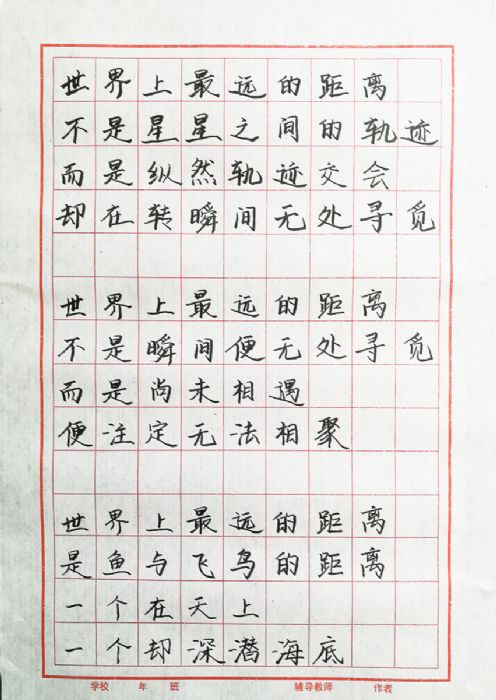 世界上最远的距离
不是星星之间的轨迹
而是纵然轨迹交会
却在转瞬间无处寻觅
世界上最远的距离
不是瞬间便无处寻觅
而是尚未相遇
便注定无法相聚
世界上最远的距离
是鱼与飞鸟的距离
一个在天上
一个却深潜海底
学校 年 班 辅导教师 作者